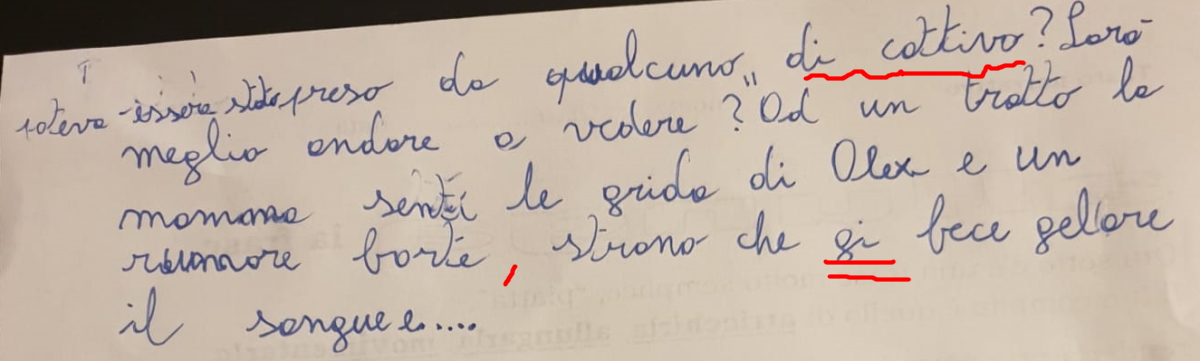 poteva essere stato preso da qualcuno,, di cattivo? Sarà
meglio andare a vedere? Ad un tratto la
mamma sentí le grida di Alex e un
rumore forte, strano che gi fece gellare
il sangue.....